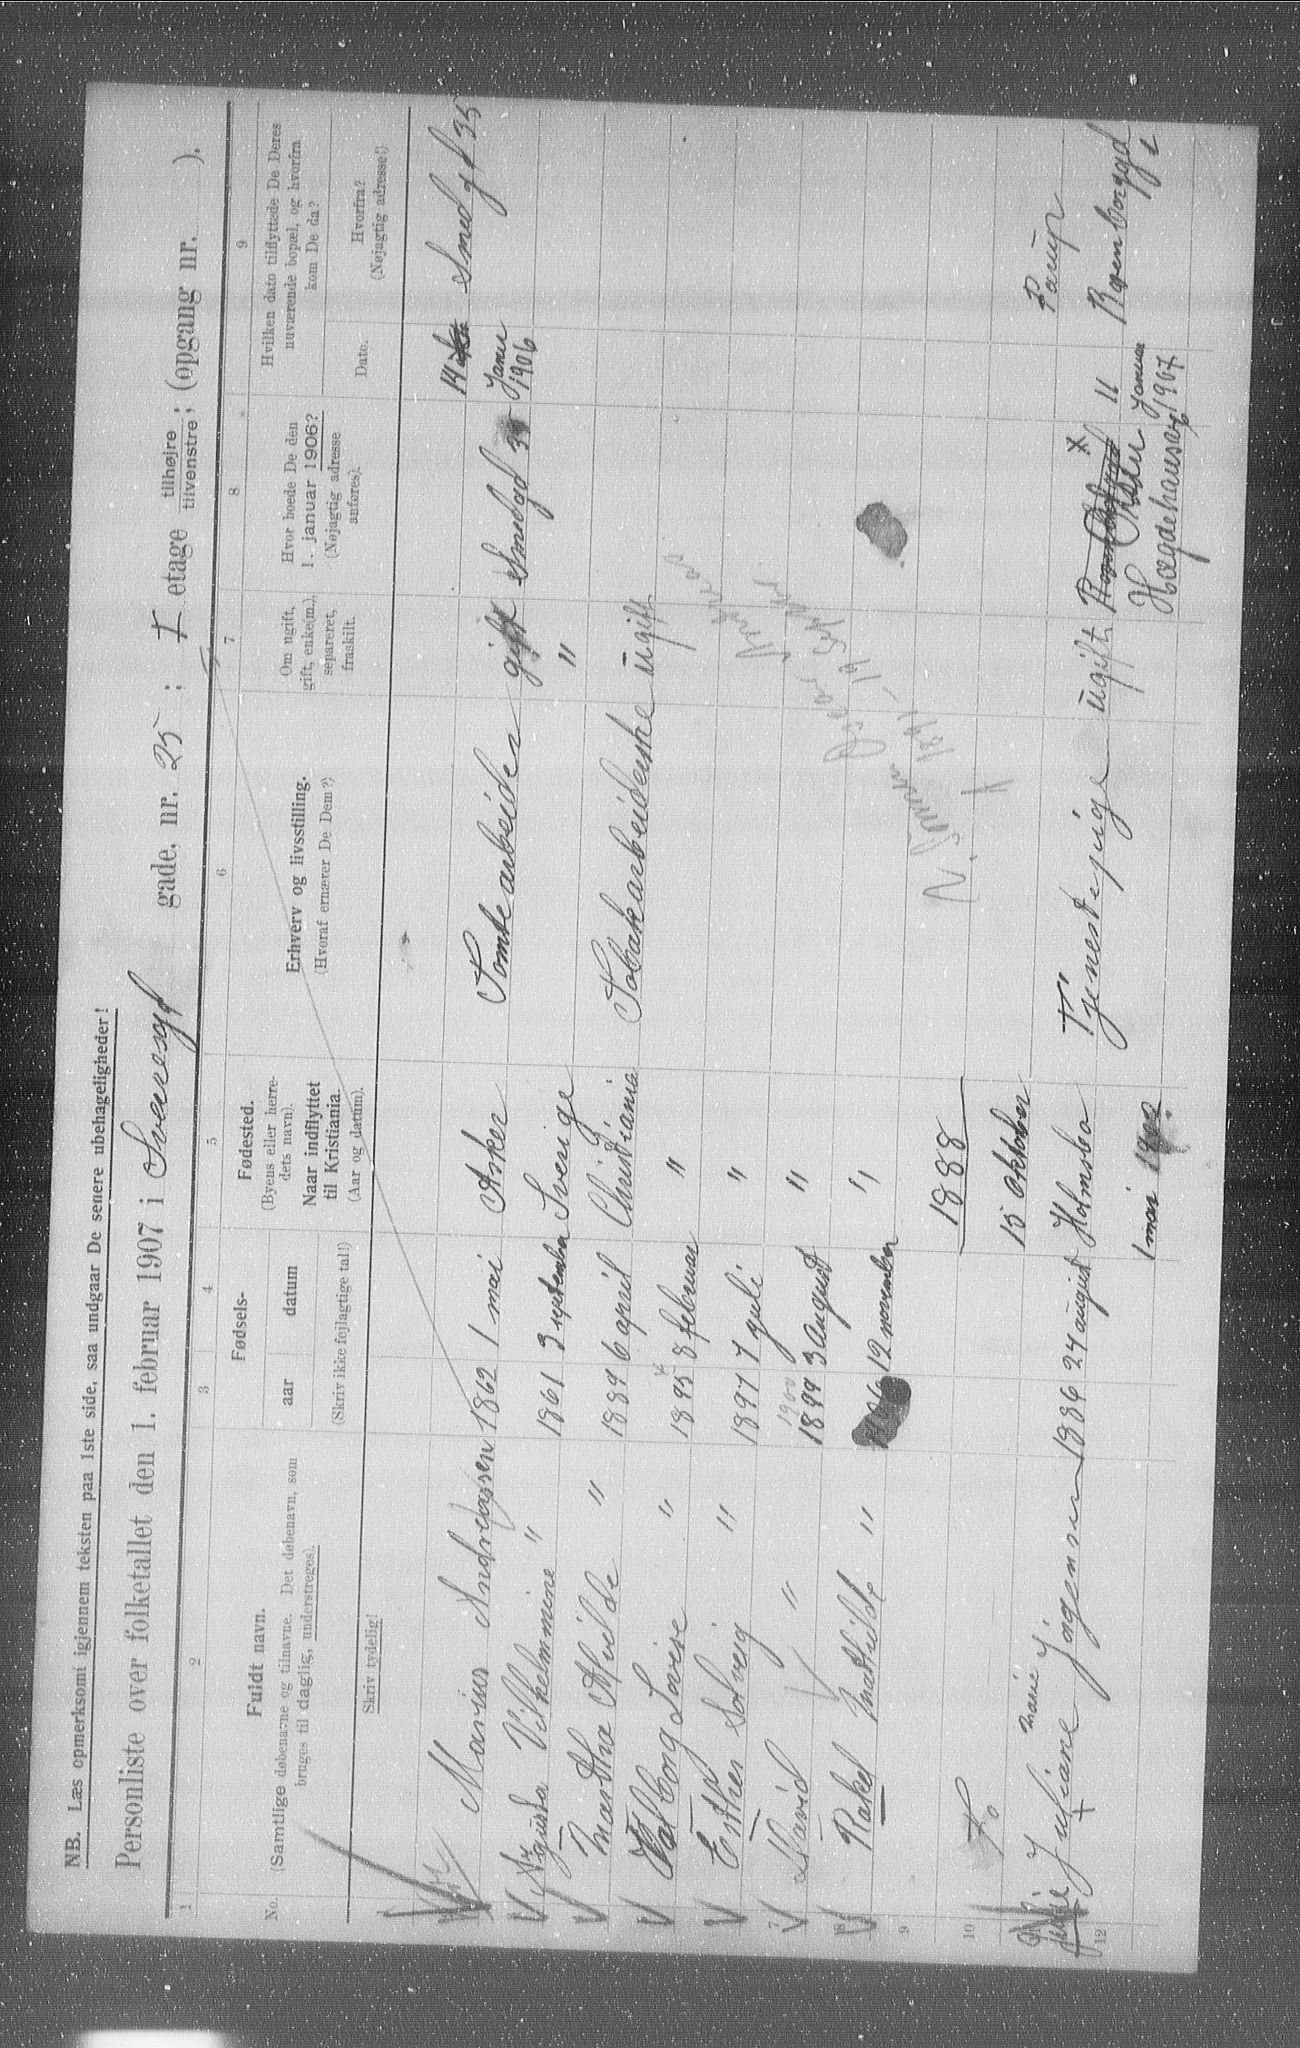 NB. Læs opmerksomt igjennem teksten paa 1ste side, saa undgaar De senere ubehageligheder!
Personliste over folketallet den 1. februar 1907 i Sveresgd gade, nr. 25 ; I etage tilhøjre tilvenstre; (opgang nr. ).
1 2 3 4 5 6 7 8 9
No. Fuldt navn. (Samtlige døbenavne og tilnavne. Det døbenavn, som bruges til daglig, understreges). Skriv tydelig!
Fødsels- aar datum (Skriv ikke fejlagtige tal!)
Fødested. (Byens eller herredets navn). Naar indflyttet til Kristiania. (Aar og datum).
Erhverv og livsstilling. (Hvoraf ernærer De Dem?)
Om ugift, gift, enke(m.), separeret, fraskilt.
Hvor boede De den 1. januar 1906? (Nøjagtig adresse anføres).
Hvilken dato tilflyttede De Deres nuværende bopæl, og hvorfra kom De da?
Date. Hvorfra? (Nøjagtig adresse!)
Marius Andreassen 1862 1 mai Asker Tomtearbeider gift Smedgd 35 14 Januar 1906 Smedgd 35
Agusta Vilhelmmine " 1861 3 september Sverige "
Martha Alvilde " 1889 6 april Christiania Tobakarbeiderske ugift
Valborg Lovise " 1895 8 februar "
Esther Solveig " 1897 7 juli "
David " 1900 1899 3 august "
Rakel Mathilde " 12 november "
9
1888
10
15 Oktober
Juliane Marie Jörgensen 1886 24 august Holmsbo Tjenestepige ugift Hægdehausen 11 Januar 1907 Rosenborggd 1
12
1 mai